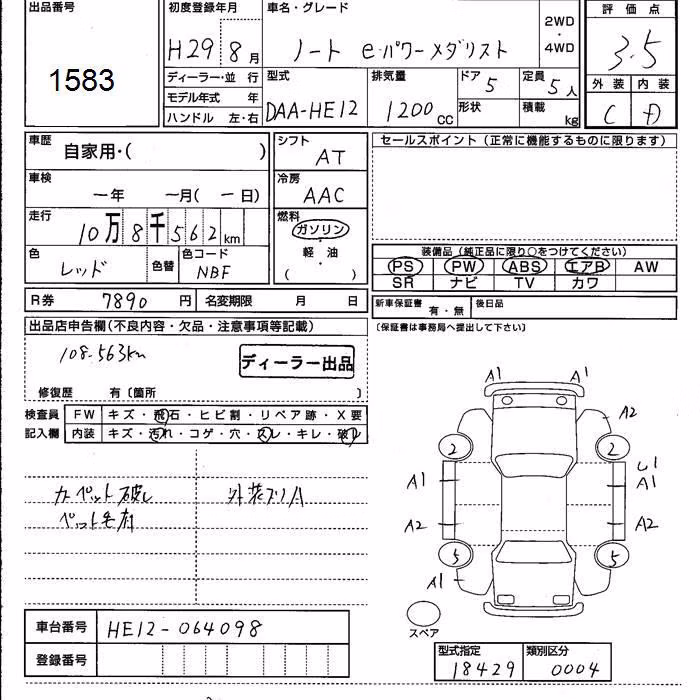 出品番号 初度登録年月 車名・グレード 2WD・4WD 評価点
1583 H29 8月 ノート e-パワーメダリスト 3.5
ディーラー・並行 型式 排気量 ドア 5 定員 5人 外装 内装
モデル年式 年 DAA-HE12 1200cc 形状 積載 kg C D
ハンドル 左・右
車歴 自家用・( ) シフト AT セールスポイント(正常に機能するものに限ります)
車検 ー年 ー月(ー日) 冷房 AAC
走行 10万8千562km 燃料 ガソリン
色 レッド 色替 色コード NBF 軽油 ( )
装備品(純正品に限り○をつけてください)
PS PW ABS エアB AW
SR ナビ TV カワ
R券 7890円 名変期限 月 日 新車保証書 有・無 後日品
出品店申告欄(不良内容・欠品・注意事項等記載) (保証書は事務局へ提出して下さい)
108.563km ディーラー出品
修復歴 有〔箇所 〕
検査員 FW キズ・飛石・ヒビ割・リペア跡・X要
記入欄 内装 キズ・汚れ・コゲ・穴・スレ・キレ・破れ
カーペット破れ 外装
ペット毛有
A1 A1
A2
2 2
A1 A1
A2 A2
5 5
A1
スペア
車台番号 HE12-064098
登録番号
型式指定 類別区分
18429 0004